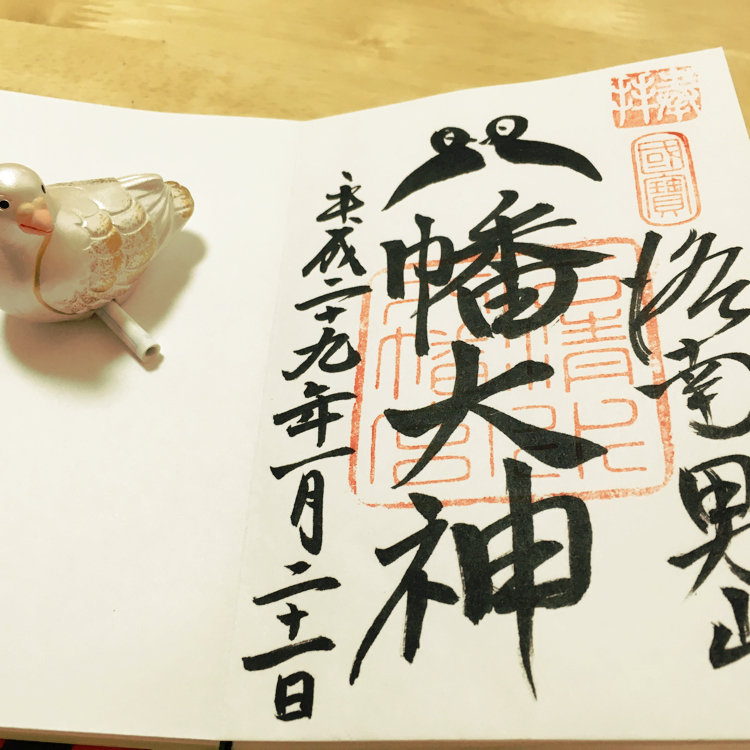 奉拝
國寶
洛南男山
八幡大神
石清水八幡宮
平成二十九年一月二十一日